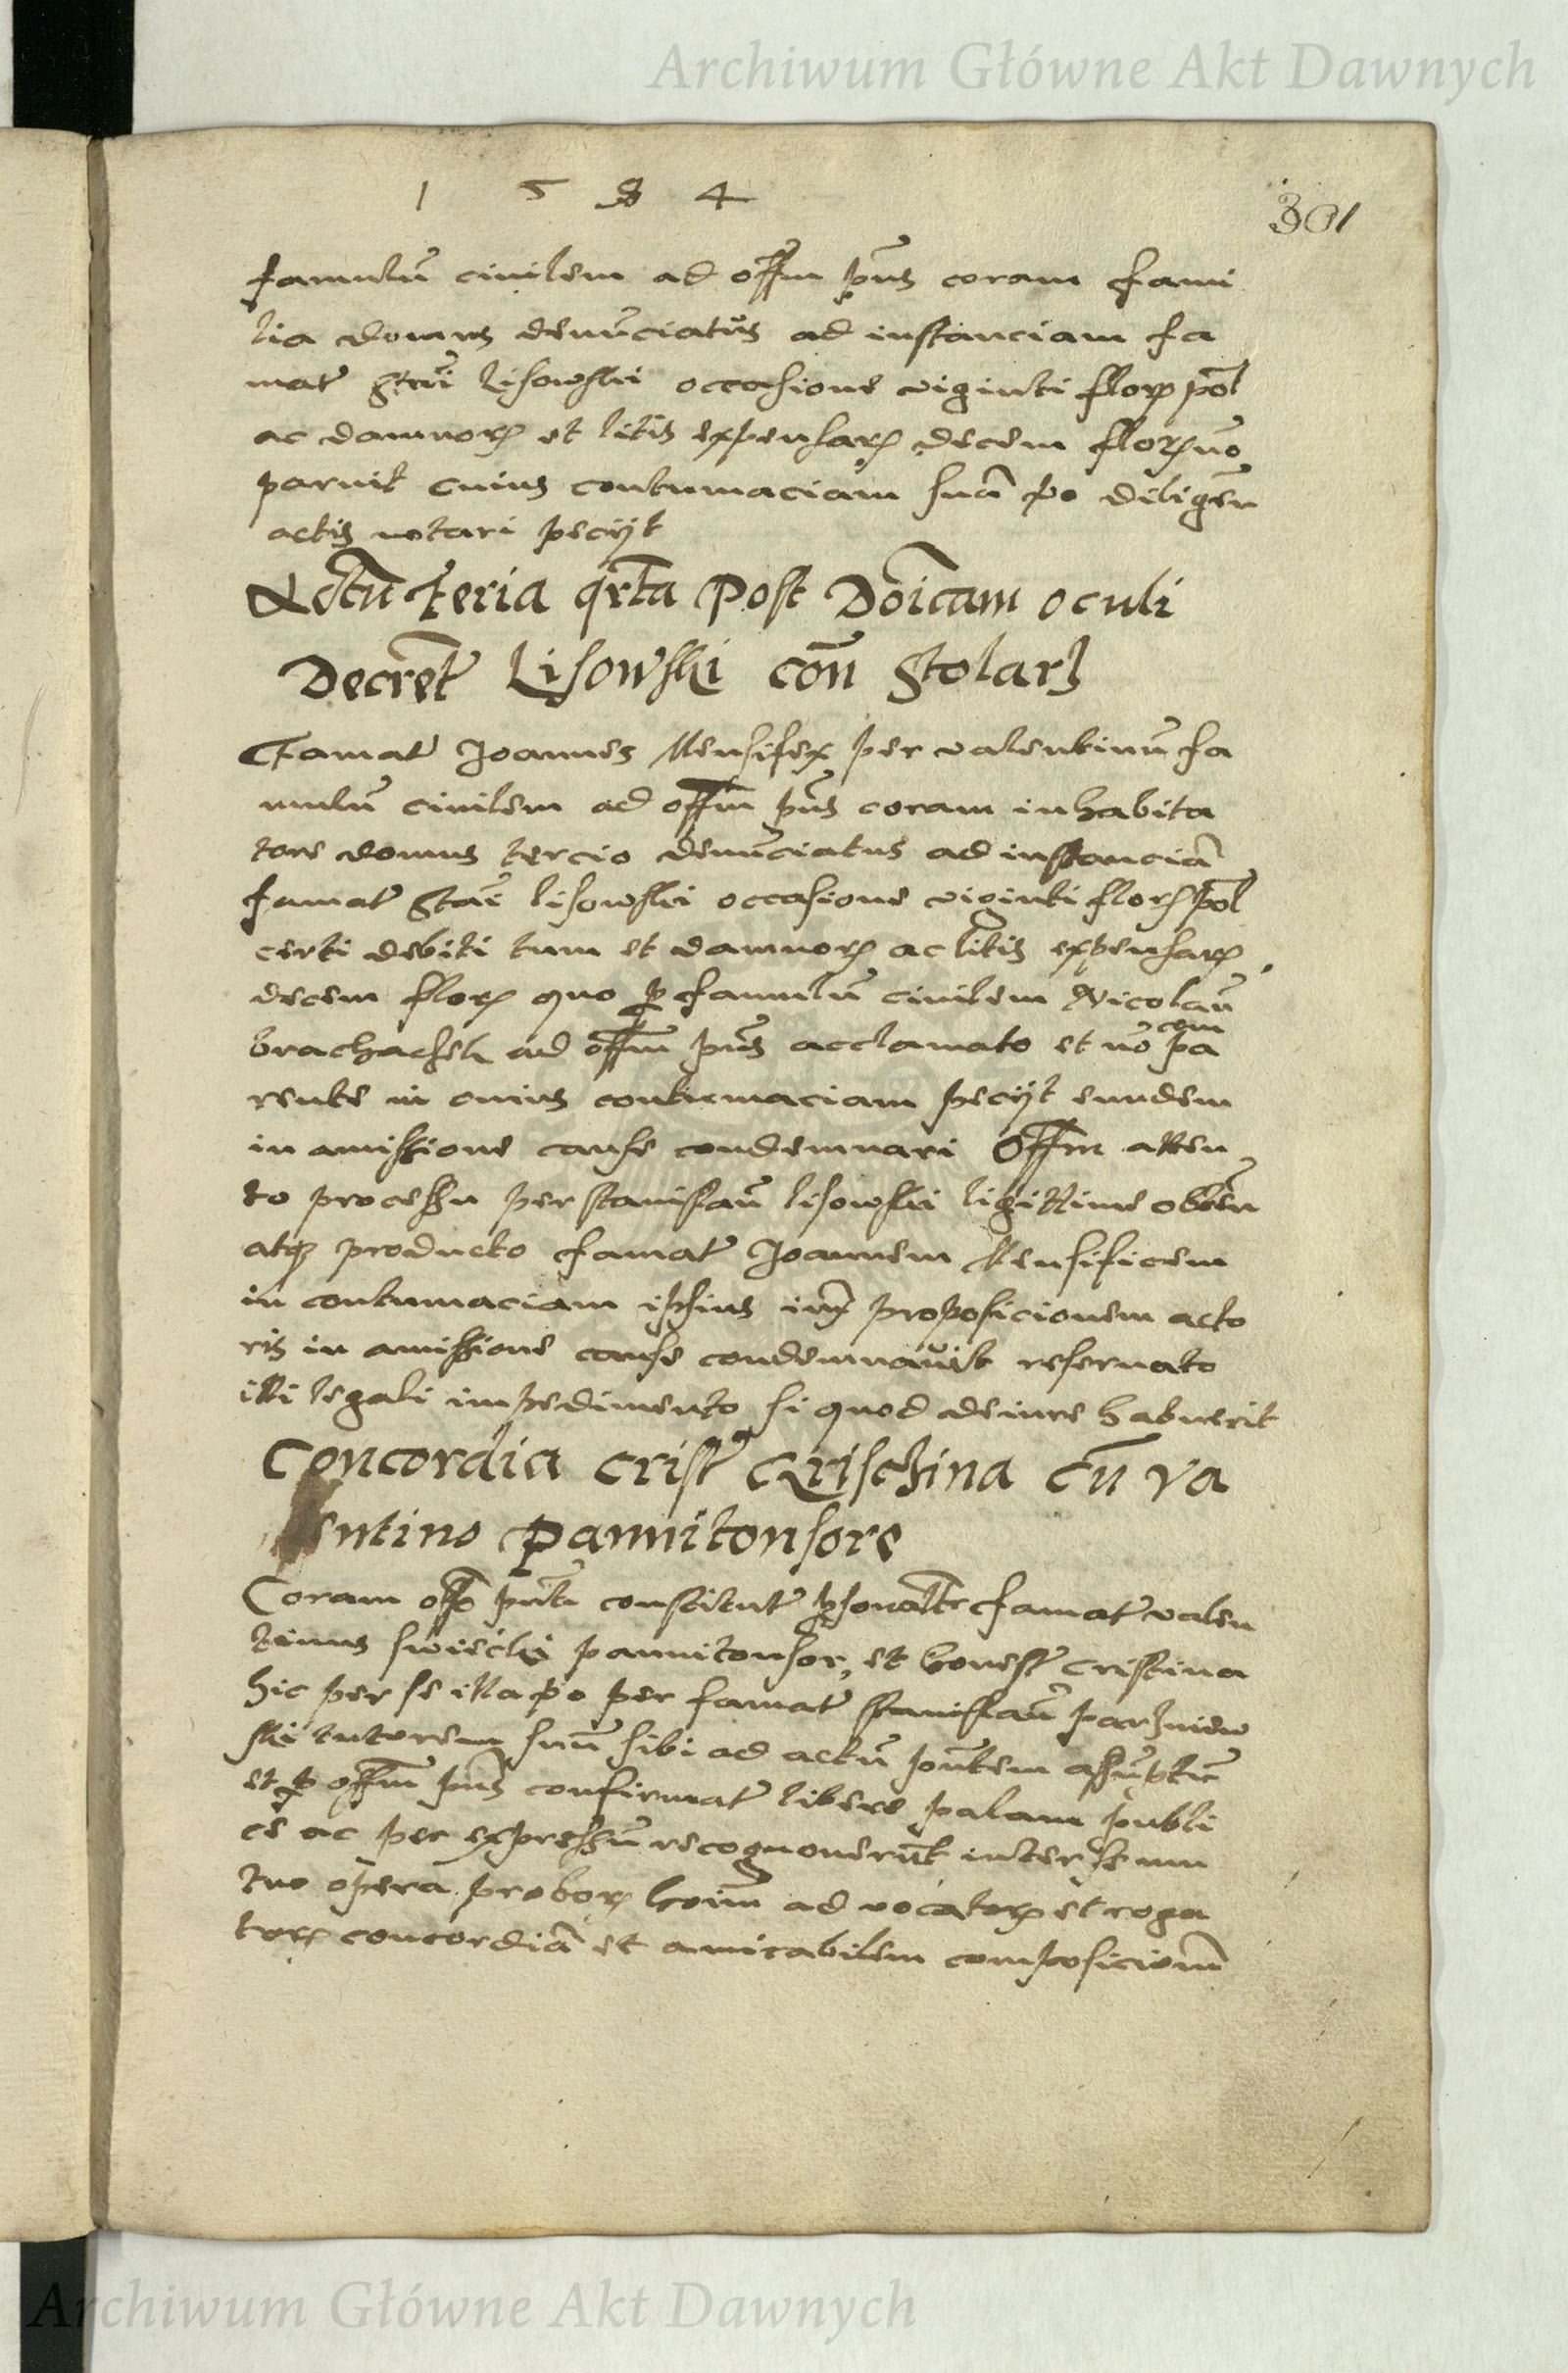 Archiwum Główne Akt Dawnych
1 5 8 4
301
famulū civilem ad offm pns coram fami
lia domus denūciatus ad instanciam fa
mat Stāi Lisowski occasione viginti flor pol
ac damnor et litis expensar decem flor nō
paruit cuius contumaciam suā po diligēn
actis notari pecijt
Actū feria qrta Post Doīcam oculi
Decret Lisowski con Stolarz
Famat Joannes Mensifex per valentinū fa
mulū civilem ad offm pns coram inhabita
tore domus tercio denūciatus ad instanciā
famat Stāi lisowski occasione viginti flor pol
certi debiti tum et damnor ac litis expensar
decem flor quo p famulū civilem Nicolaū
ad offm pns acclamato et nō com
pa
rente in cuius contumaciam pecijt eundem
in amissione cause condemnari Offm atten
to processu per stanislaū lisowski ligittime obten
atq producto famat Joannem Mensificem
in contumaciam ipsius iux proposicionem acto
ris in amissione cause condemnavit reservato
illi legali impedimento si quod de iure habuerit
Concordia crist Crischina cū va
lentino Pannitonsore
Coram offo pnti constitut psonalr famat valen
tinus swiecki pannitonsor, et honest cristina
hic per se illa po per famat stanislaū parzniew
ski tutorem suū sibi ad actū pntem assūptū
et p offm pns confirmat libere palam publi
ce ac per expressū recognoverūt inter se mu
tuo opera probor hoim ad vocator et roga
tor concordiā et amicabilem composicionē
Archiwum Główne Akt Dawnych